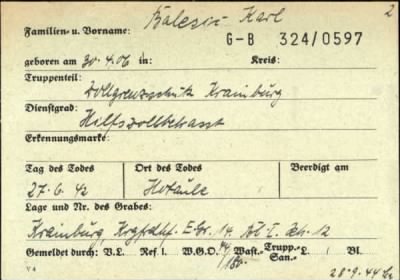 2
Familien- u. Vorname: Balesic Karl
G-B 324/0597
geboren am 30.4.06 in: Kreis:
Truppenteil:
Zollgrenzschutz Krainburg
Dienstgrad:
Hilfszollbetrasst
Erkennungsmarke:
Tag des Todes Ort des Todes Beerdigt am
27.6.42 Hotaule
Lage und Nr. des Grabes:
Krainburg, E.Gr. 14
Gemeldet durch: V.L. Ref. W.G.O. Wast.- Trupp.- San.- L. Bl.
28.9.44